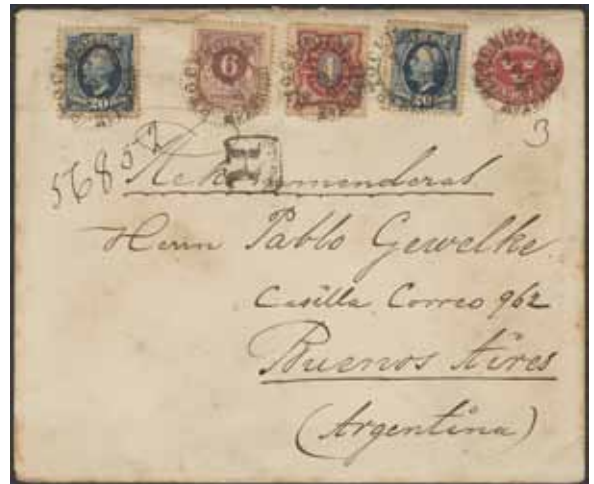 20 6 1 20
STOCKHOLM
3
56852
R
Rekommenderas
Herrn Pablo Gewelke
Casilla Correo 962
Buenos Aires
(Argentina)